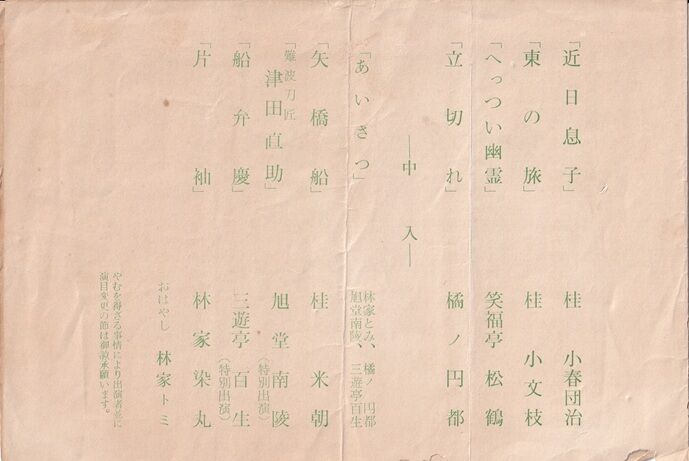 「近日息子」　桂　小春団治
「東の旅」　桂　小文枝
「へっつい幽霊」　笑福亭　松鶴
「立切れ」　橘ノ円都
―中　入―
「あいさつ」　林家とみ、橘ノ円都
旭堂南陵、三遊亭百生
「矢橋船」　桂　米朝
「難波刀匠
津田直助」　旭堂南陵
（特別出演）
「船弁慶」　三遊亭百生
（特別出演）
「片袖」　林家染丸
おはやし　林家トミ
やむを得ざる事情により出演者並に
演目変更の節は御諒承願います。